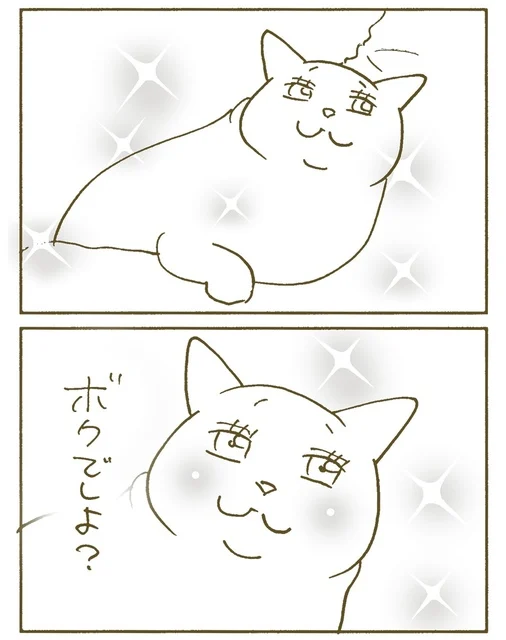 ボクでしよ?